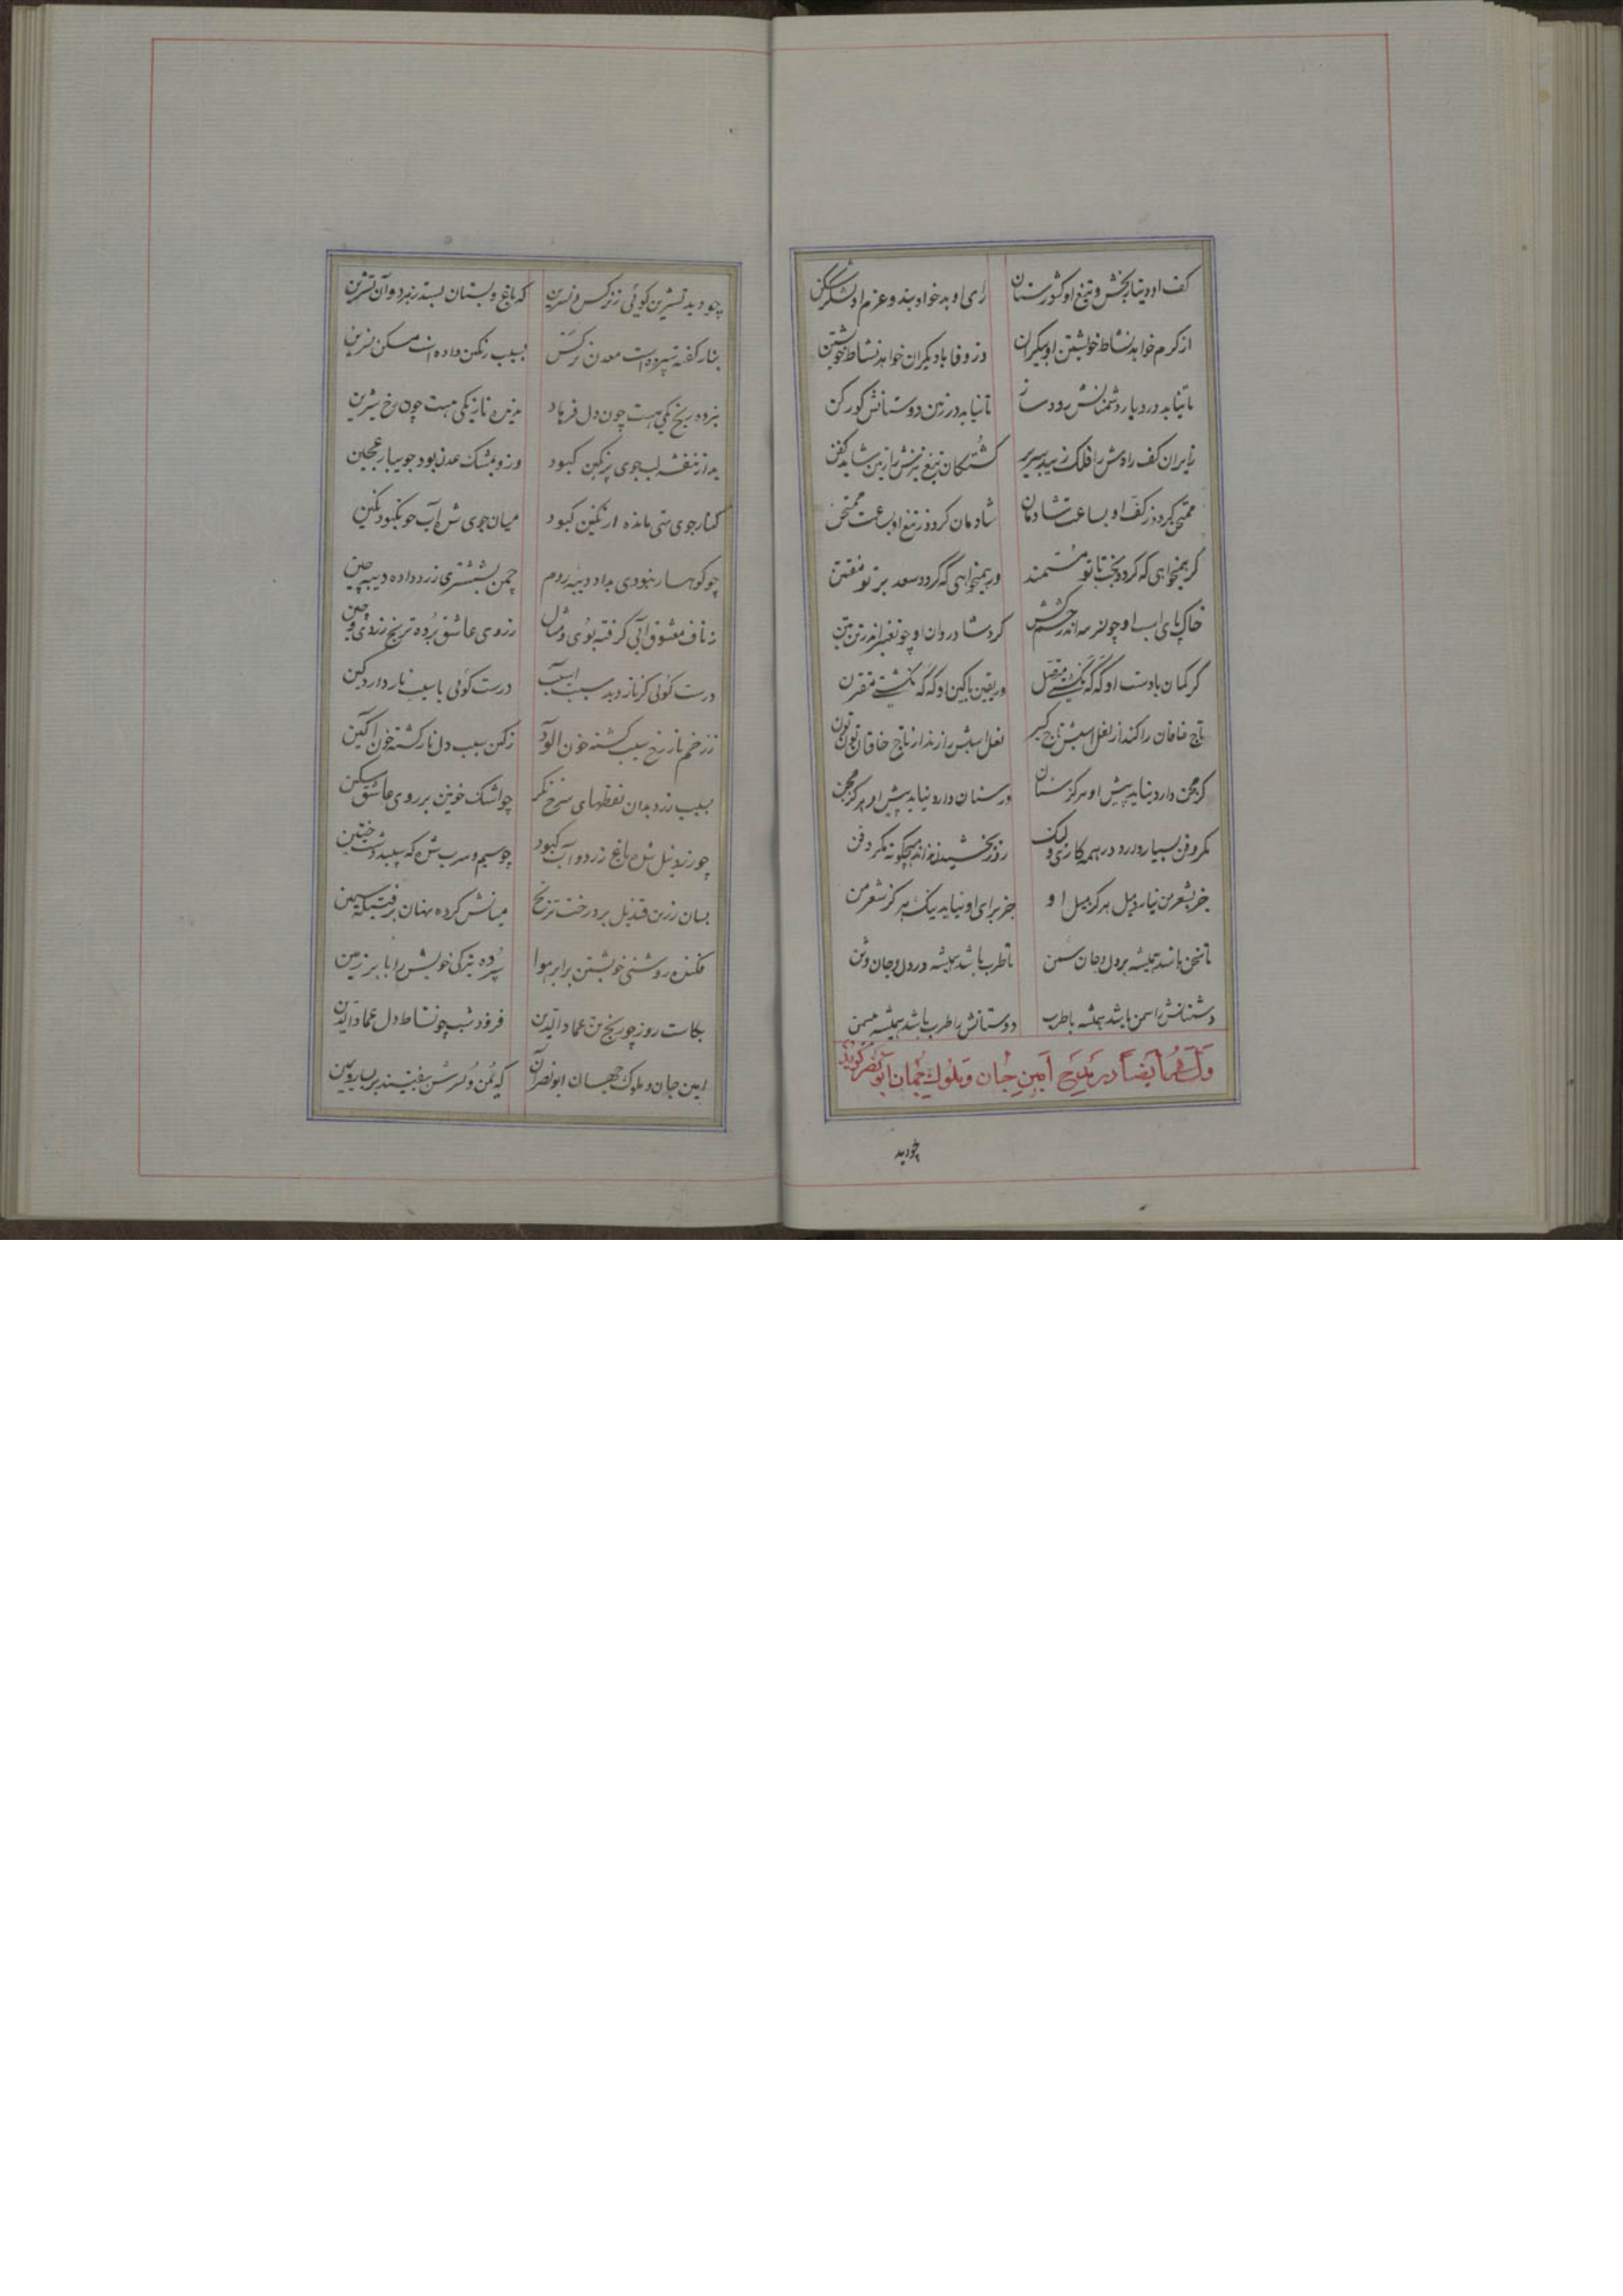 کف او دینار بخش و تیغ او کشور ستان رای او بدخواه بند و عزم او لشکر شکن
از کرم خواهد نشاط خویشتن او بیکران وز وفا با دیگران خواهد نشاط خویشتن
تا نیابد در دیار دشمنانش رود ساز تا نیابد در زمین دوستانش گورکن
زایران کف رادش را فلک زیبد سریر کشتگان تیغ تیزش را زمین شاید کفن
ممتحن گردد ز کف او بساعت شادمان شادمان گردد ز تیغ او بساعت ممتحن
گر همیخواهی که گردد بخت با تو مستمند ور همیخواهی که گردد سعد بر تو مفتتن
خاک پای اسب او چون سرمه اندر چشم کش کرد شادروان او چون عنبر اندر تن بتن
گر گمان با دست او گه گه نگشتی متصل ور یقین با کین او گه گه نگشتی مقترن
تاج خاقان را کند از نعل اسبش تاج گیر نعل اسبش را زند از تاج خاقان
گر مجن دارد نیاید پیش او هرگز سنان ور سنان دارد نیاید پیش او هرگز مجن
مکر و فن بسیار دارد در همه کاری ولیک روز بخشیدن نداند هیچگونه مکر و فن
جز بشعر من نیارد میل هرگز میل او جز برای او نیاید نیک هرگز شعر من
تا شجن باشد همیشه بر دل و جان سمن تا طرب باشد همیشه در دل و جان وثن
دشمنانش را سمن باشد همیشه با طرب دوستانش را طرب باشد همیشه
وله ایضاً در مدح امین جان و ملوک جهان ابونصر گوید
چو دید
چو دید تشرین گوئی ز نرگس و نسرین که باغ و بستان بستد ز هر دوان تشرین
بنار کفته سپرده است معدن نرگس بسیب رنگین داده است مسکن نسرین
یکی هست چون دل فرهاد یکی هست چون رخ شیرین
بد از بنفشه لب جوی پر نگین کبود وز و بمشک عدن بود جویبار عجین
کنار جوی تهی مانده از نگین کبود میان جوی شد آب چو کبود نگین
چو کوهسار بنودی بداد دیبه روم چمن بششتری زرد داده دیبه چین
ز ناف معشوق آبی گرفته بوی و مثال ز روی عاشق برده ترنج زردی و چین
درست گوئی کز نار دید سیب آسیب درست گوئی با سیب نار دارد کین
ز زخم نار رخ سیب گشته خون آلود ز کین سیب دل نار گشته خون آگین
بسیب زرد بدان نقطهای سرخ نگر چو اشک خونین بر روی عاشق مسکین
چو زر و نیل شده باغ زرد و آب کبود چو سیم و سرب شده که سپید و دشت
بسان زرین قندیل بر درخت ترنج میانش کرده نهان
فکنده روشنی خویشتن برابر هوا سپرده تیرگی خویش را بابر زمین
بکاست روز چو رنج تن عماد الدین فزود شب چو نشاط دل عماد الدین
امین جان و ملوک جهان ابونصر آن که یمن و یسرش بینند بر یسار و یمین